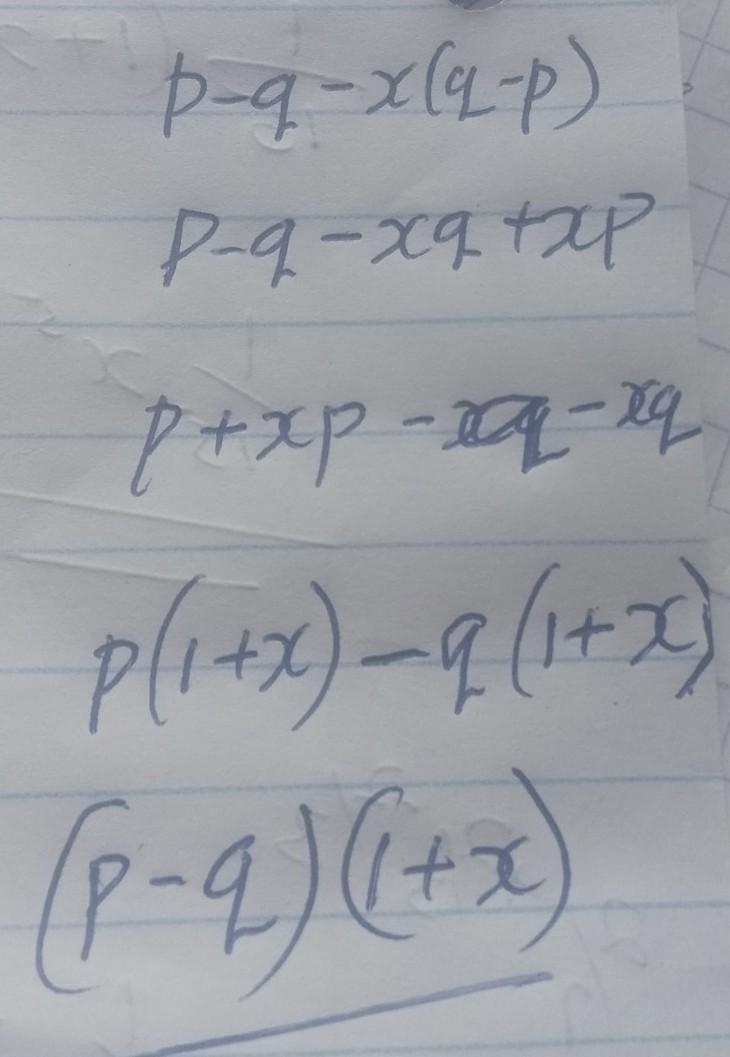 p-q-x(q-p)
p-q-xq+xp
p+xp-q-xq
p(1+x)-q(1+x)
(p-q)(1+x)